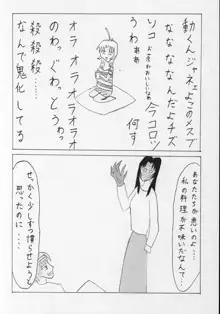 動くんジャネェよこのメスブ
ななななんだよチズ
ソコ
お茶がおいしいなぁ
今コロッ
うわぁぁ
何す
オラオラオラオラオラ
のわっぐわっとうわっ
殺殺殺殺・・・・
なんで鬼化してる
あなたたちが悪いのよ・・・
私の料理が不味いだなんて・・
せっかく少しずつ慣らせようと
思ったのに・・・・